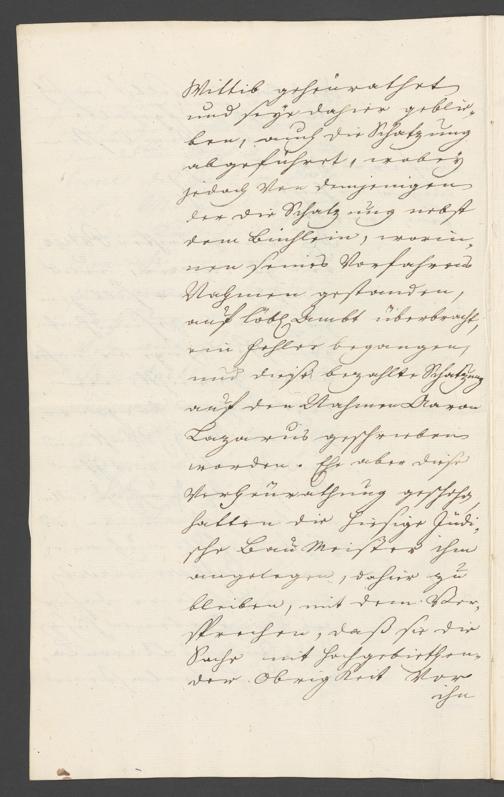 Wittib geheurathet
und seye dahier geblie-
ben, auch die Schatzung
abgeführet, wobey
jedoch von demjenigen
der die Schatzung nebst
dem Büchlein, worin-
nen seines Vorfahrens
Nahmen gestanden,
auf löbl Ambt überbracht,
ein Fehler begangen
und diese bezahlte Schatzung
auf den Nahmen Aaron
Lazarus geschrieben
worden. Ehe aber diese
Verheurathung geschehen,
hatten die hiesige Jüdi-
sche BauMeister ihm
angelegen, dahier zu
bleiben, mit dem Ver-
sprechen, daß sie die
Sache mit hochgebiethen-
der Obrigkeit Vor
ihn